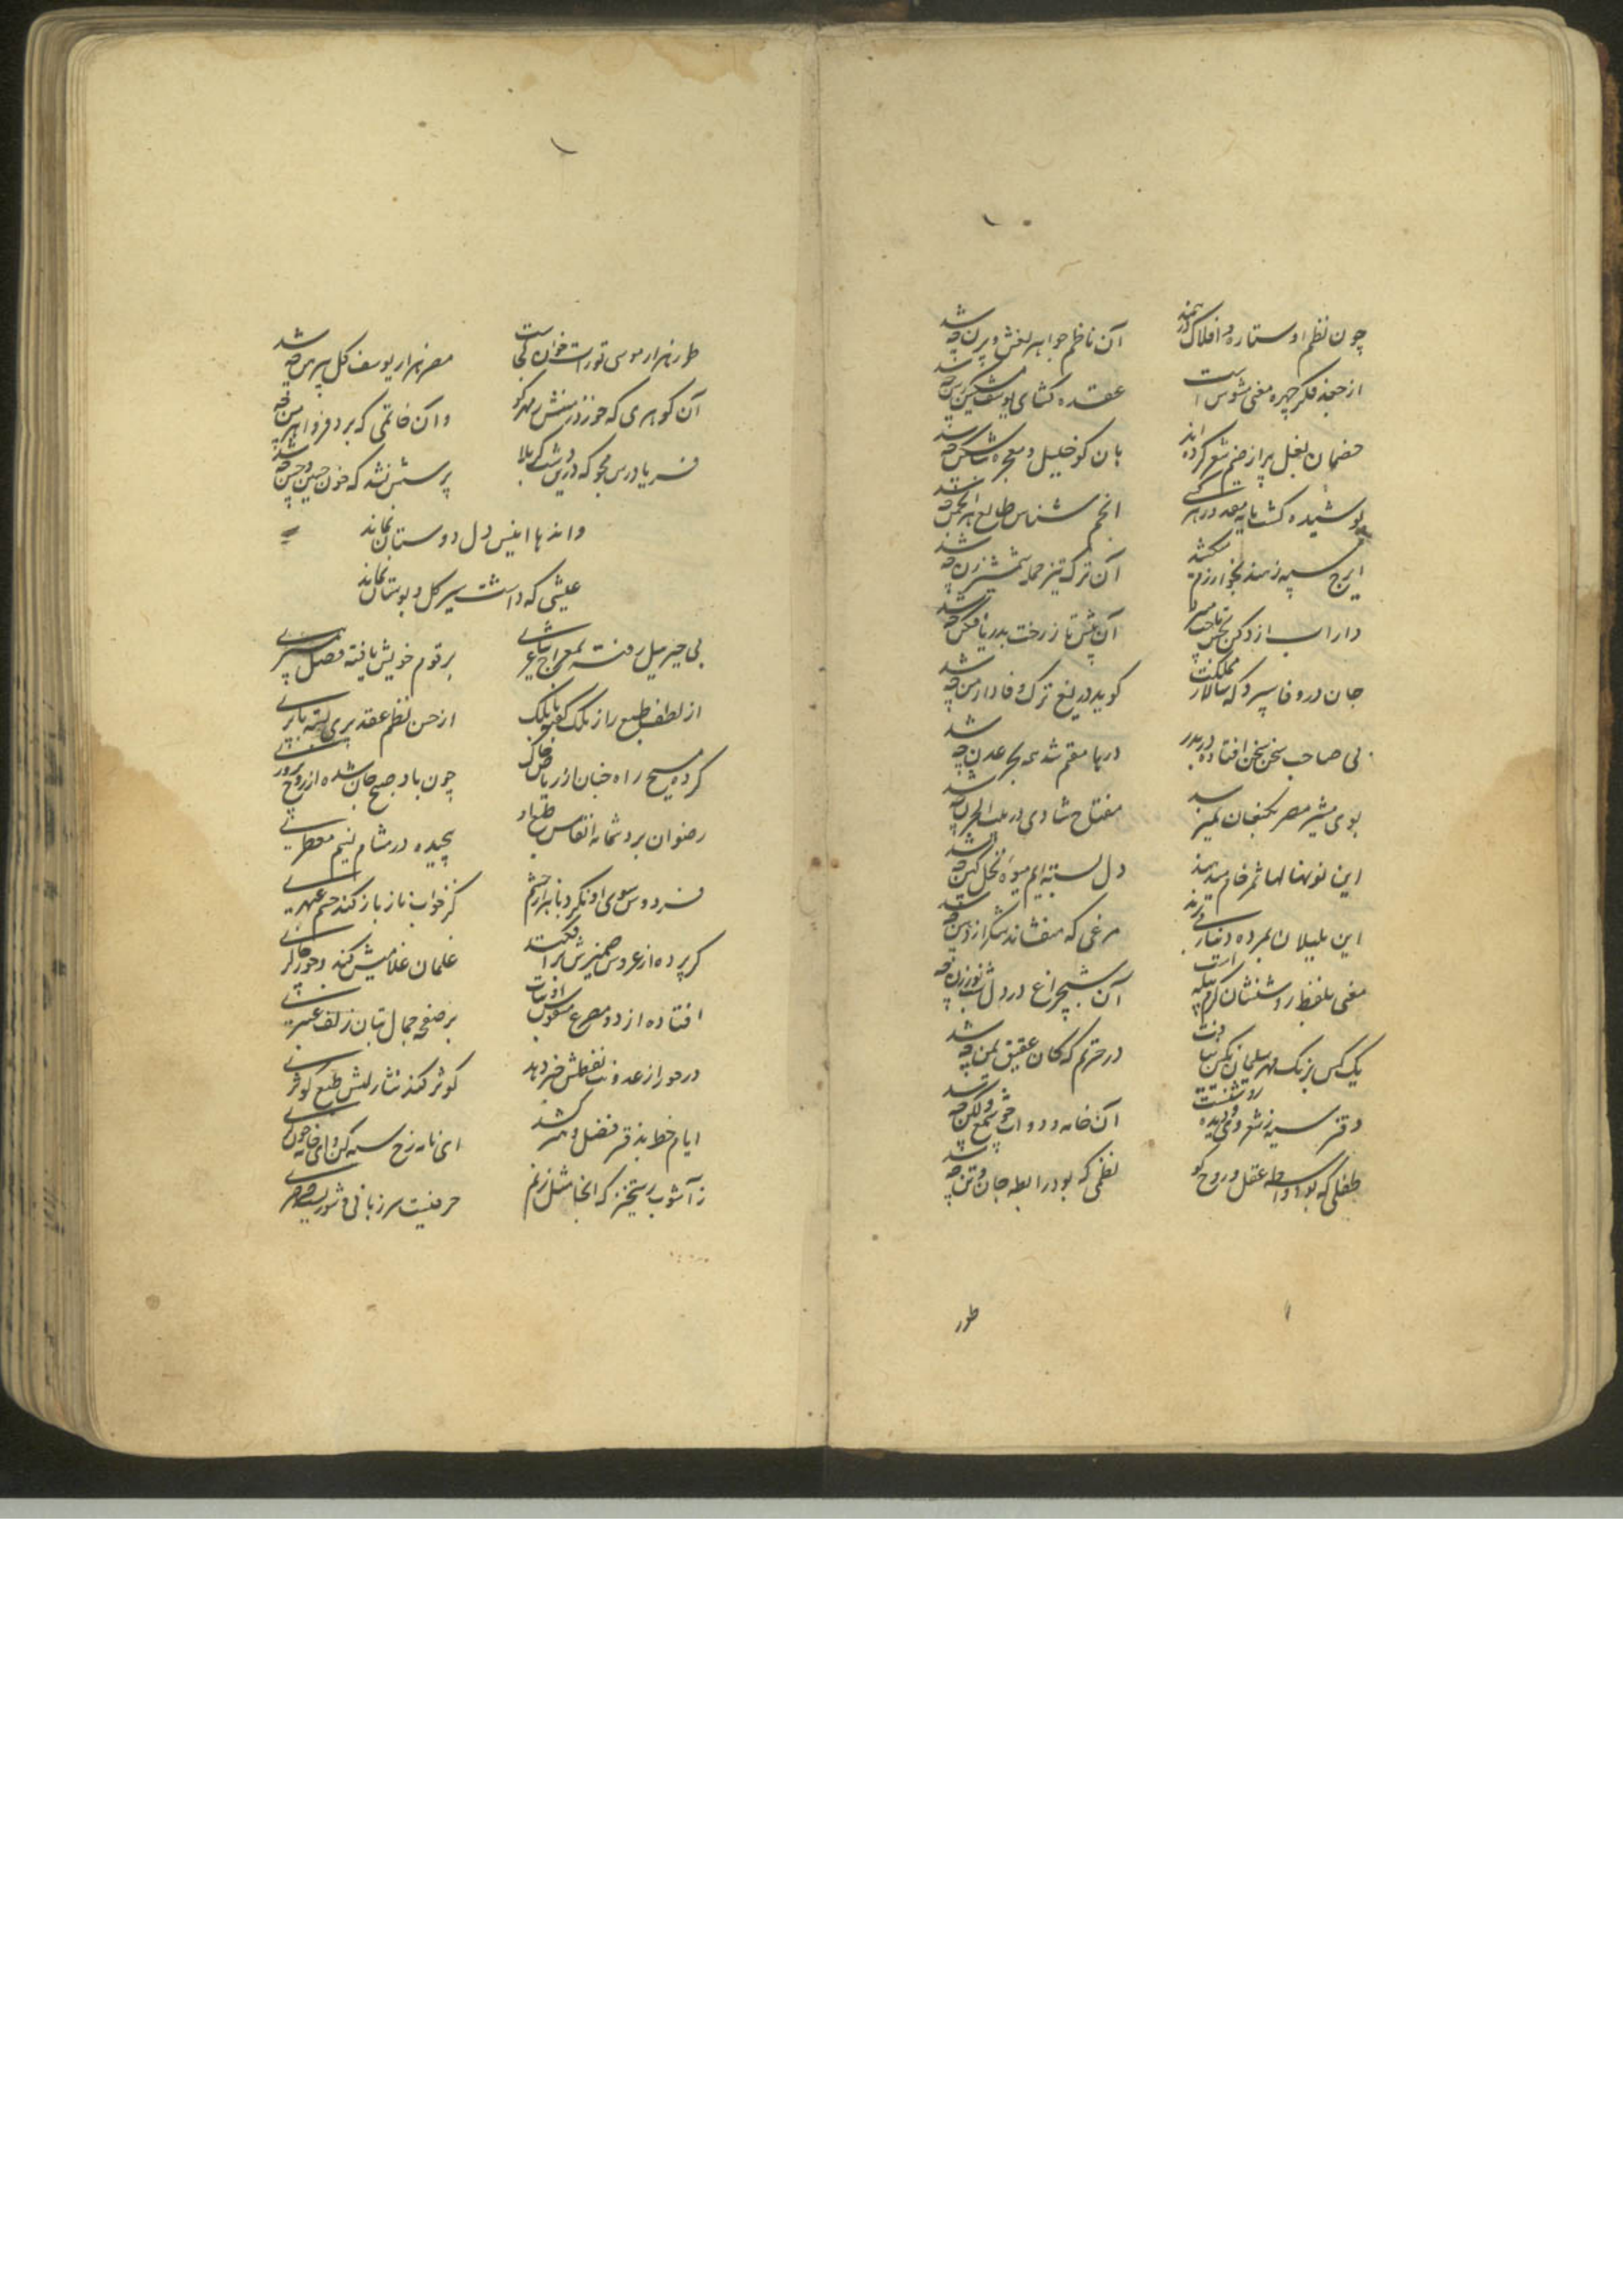 چون نظم او ستاره و افلاک درهمند آن ناظم جواهر نعش و پرن چه شد
از جعد فکر چهره معنی مشوش است عقده کشای یوسف مشکین رسن چه شد
خصمان بغل پر از صنم شعر کرده اند بان کو خلیل و معجزه بت شکن چه شد
پوشیده کشت مایه سعد در هنر انجم شناس طالع هر انجمن چه شد
ایرج سپه ز هند بخوارزم میکشد آن ترک تیز حمله شمشیر زن چه شد
داراب از دکن تاخت آن پیش تاز رخت بدریا فکن چه شد
جان در وفا سپرد که سالار مملکت کوید دریغ ترک وفادار من چه شد
بی صاحب سخن سخن افتاده در بدر دریا مقیم شد بحر عدن چه شد
بوی مشیر مصر بکنعان نمیرسد مفتاح شادی در بیت الحزن چه شد
این نونهالها ثمر خام میدهند دل بسته ایم میوه نخل کهن چه شد
این بلبلان مرده دنبال مرغی که میفشاند شکر از دهن چه شد
معنی بلفظ روشنشان کرم پیله است آن شبچراغ در دل شب نور زن چه شد
یک کس برنک مهر سلیمان نکین نیافت در حیرتم که کان عقیق یمن چه شد
دفتر سیه ز شعر و دیده آن خامه و دوات چه شمع و لکن چه شد
طفلی که بود واسطه عقل و روح کو نظمی که بود رابطه جان و تن چه شد
طور
طور هزار موسی تورات خوان کجاست مصر هزار یوسف کل پیرهن چه شد
آن کوهری که مهر کو و آن خاتمی که برد فرو اهرمن چه شد
فریادرس مجو که درین دشت کربلا پرسش نشد که خون حسین و حسن چه شد
واندها انیس دل دوستان نماند
عیشی که داشت سیر کل و بوستان نماند
بی جبرئیل رفته بمعراج شاعری بر قوم خویش یافته فصل پیمبری
از لطف طبع راز ملک کفته با ملک از حسن نظم عقد پری بسته با پری
کرده مسیح راه جنان از ریاض خاک چون باد صبح جان شده از روح پروری
رضوان برد شمامه انفاس طیب او پیچیده در مشام نسیم معطری
فردوس سوی او نکرد باهزار چشم کز خواب ناز باز کند چشم عبهری
کر پرده از عروس ضمیرش برافکنند غلمان غلامیش کند و حور چاکری
افتاده از دو مصرع معکوس او بر صفحه جمال بتان زلف عنبری
در حور از عذوبت لفظش خبر دهد کوثر کند نثار لبش طبع کوثری
ایام خط بدفتر فضل و هنر کشد ای نامه رخ سیه کن و ای خامه خون کری
ز آشوب رستخیز که حرفیست سر زبانی و شوریست